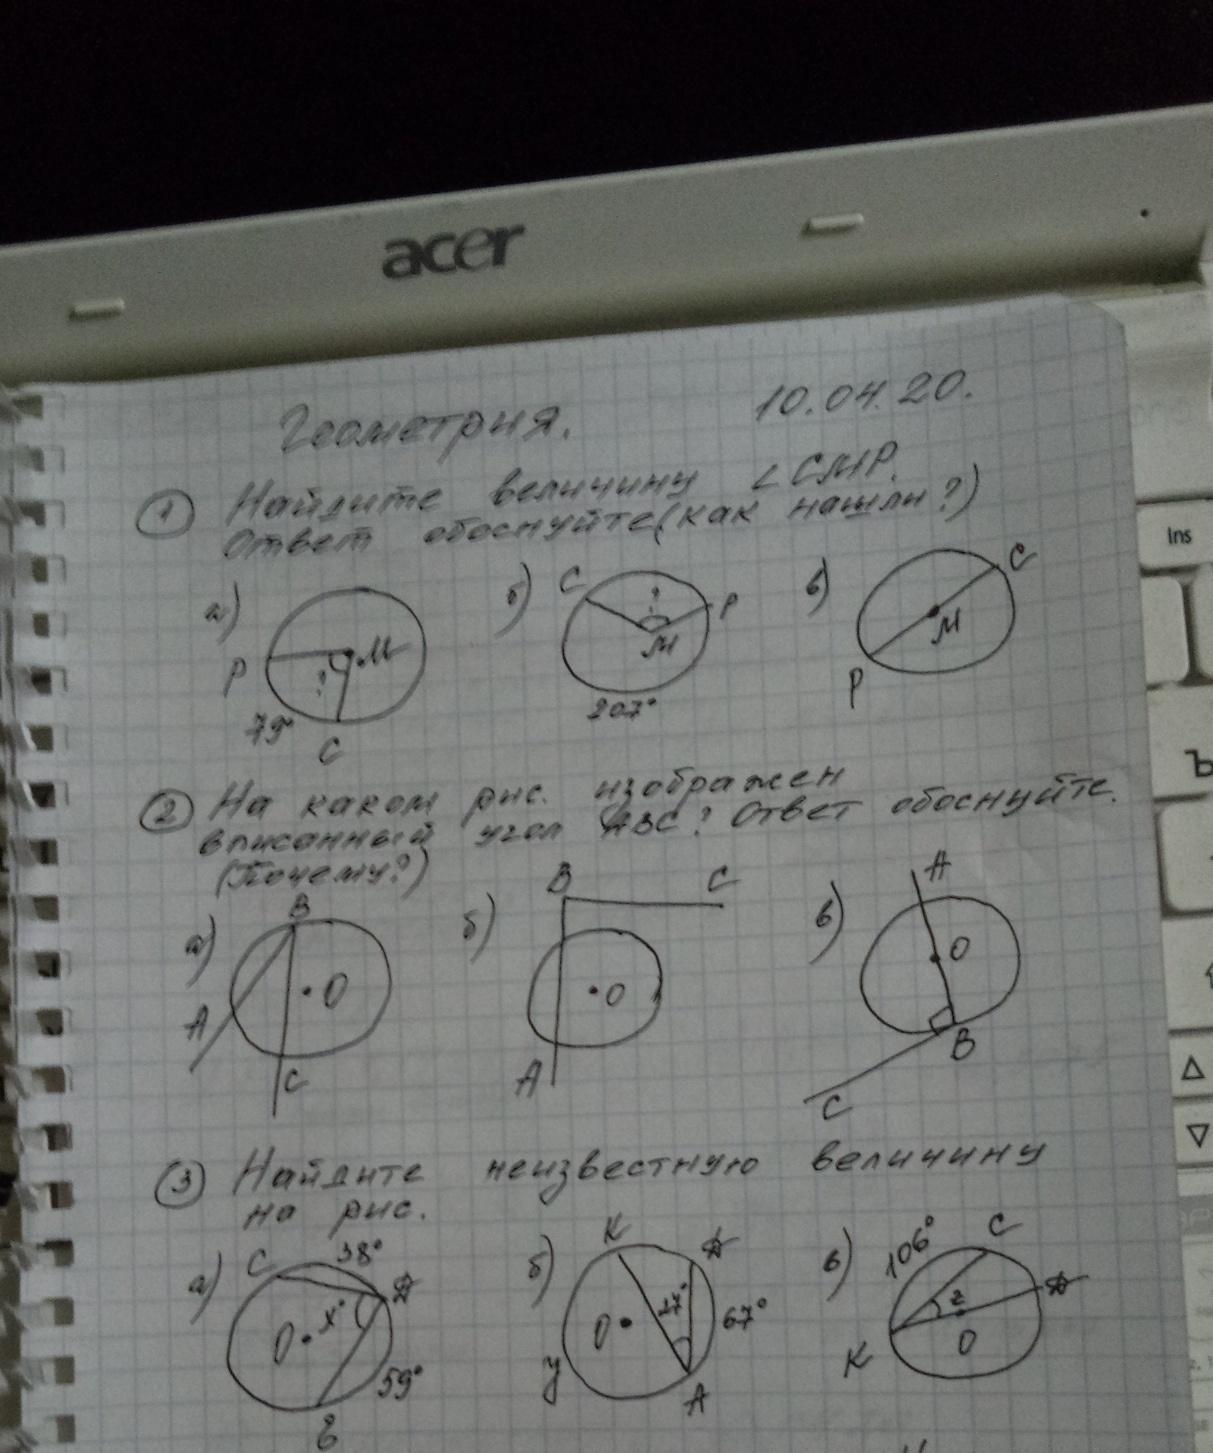 acer
Геометрия. 10.04.20.
① Найдите величину ∠CMP.
Ответ обоснуйте (как нашли?)
а) P ? M 79° C
б) C ? P M 207°
в) C M P
② На каком рис. изображен
вписанный угол ABC? Ответ обоснуйте.
(Почему?)
а) B O A C
б) B C O A
в) A O B C
③ Найдите неизвестную величину
на рис.
а) C 38° D O x° 59° E
б) K D O 27° 67° y A
в) 106° C z D K O
Ins
Ъ